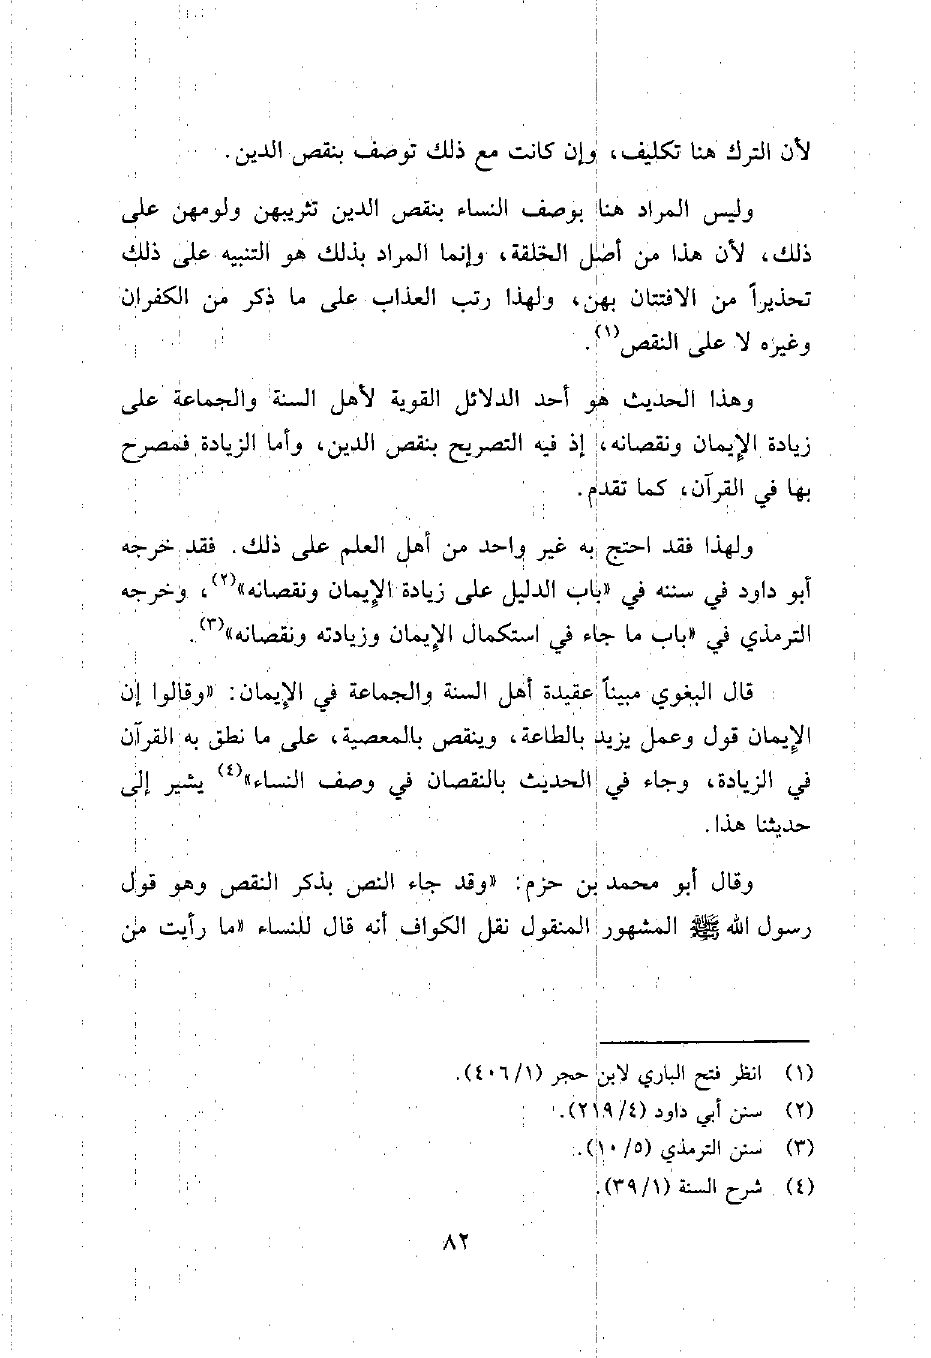 لأن الترك هنا تكليف، وإن كانت مع ذلك توصف بنقص الدين.
وليس المراد هنا بوصف النساء بنقص الدين تثريبهن ولومهن على
ذلك، لأن هذا من أصل الخلقة، وإنما المراد بذلك هو التنبيه على ذلك
تحذيراً من الافتتان بهن، ولهذا رتب العذاب على ما ذكر من الكفران
وغيره لا على النقص(١).
وهذا الحديث هو أحد الدلائل القوية لأهل السنة والجماعة على
زيادة الإيمان ونقصانه، إذ فيه التصريح بنقص الدين، وأما الزيادة فمصرح
بها في القرآن، كما تقدم.
ولهذا فقد احتج به غير واحد من أهل العلم على ذلك. فقد خرجه
أبو داود في سننه في «باب الدليل على زيادة الإيمان ونقصانه»(٢)، وخرجه
الترمذي في «باب ما جاء في استكمال الإيمان وزيادته ونقصانه»(٣).
قال البغوي مبيناً عقيدة أهل السنة والجماعة في الإيمان: «وقالوا إن
الإيمان قول وعمل يزيد بالطاعة، وينقص بالمعصية، على ما نطق به القرآن
في الزيادة، وجاء في الحديث بالنقصان في وصف النساء»(٤) يشير إلى
حديثنا هذا.
وقال أبو محمد بن حزم: «وقد جاء النص بذكر النقص وهو قول
رسول الله ﷺ المشهور المنقول نقل الكواف أنه قال للنساء «ما رأيت من
(١) انظر فتح الباري لابن حجر (٤٠٦/١).
(٢) سنن أبي داود (٢١٩/٤).
(٣) سنن الترمذي (١٠/٥).
(٤) شرح السنة (٣٩/١).
٨٢